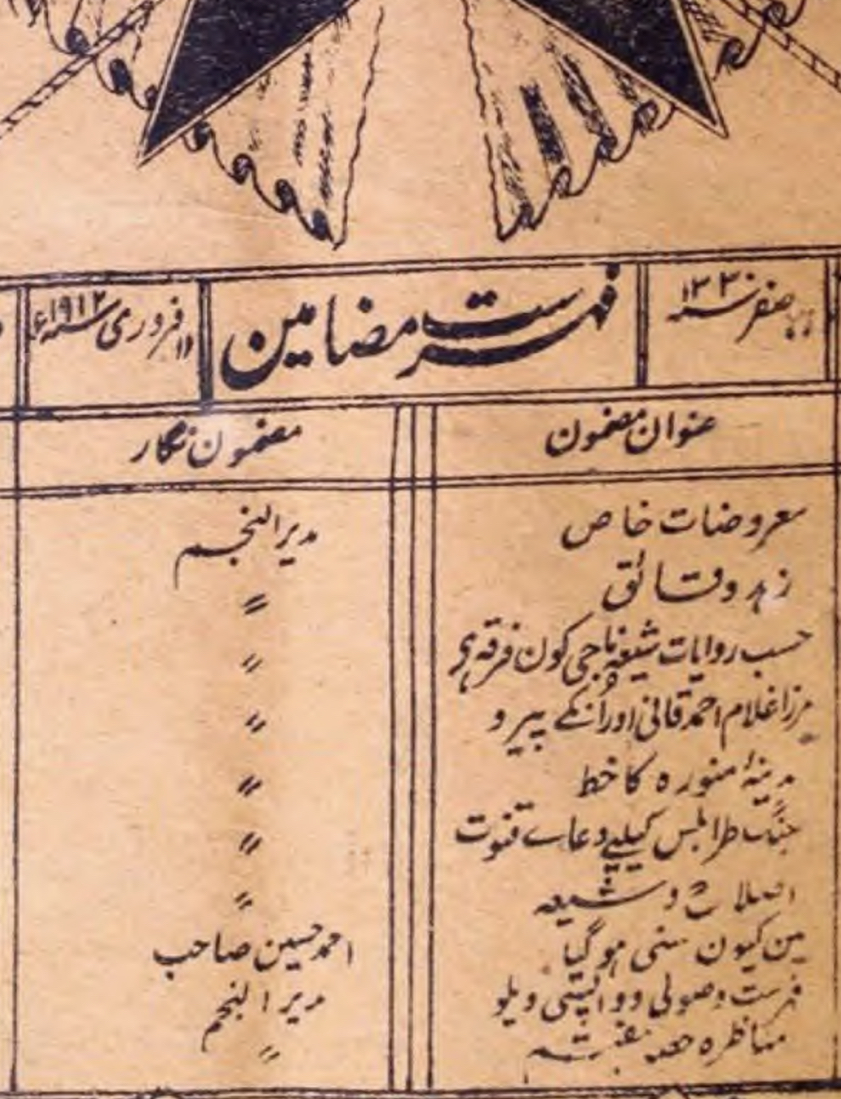 صفر سنہ ۱۳۳۰
فہرست مضامین
۱۱ فروری سنہ ۱۹۱۲ء
عنوان مضمون
مضمون نگار
معروضات خاص
مدیر النجم
زہد و قائق
〃
حسب روایات شیعہ ناجی کون فرقہ ہر
〃
مرزا غلام احمد قانی اور اُنکے پیرو
〃
مدینۂ منورہ کا خط
〃
جنگ طرابلس کیلیے دعاے قنوت
〃
اصلاح و شیعہ
〃
مین کیون سنی ہو گیا
احمد حسین صاحب
فہرست وصولی و واپسی ویلو
مدیر النجم
مناظرہ حصہ
〃